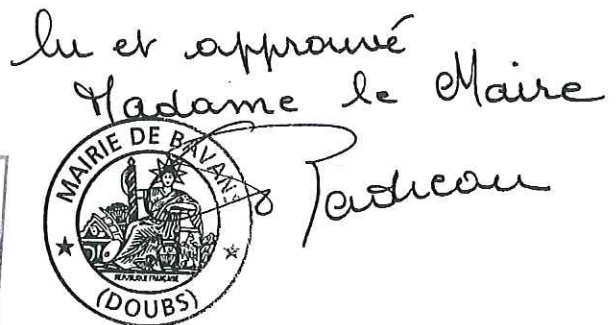 lu et approuvé
Madame le Maire
MAIRIE DE BAVANS
RÉPUBLIQUE FRANÇAISE
(DOUBS)